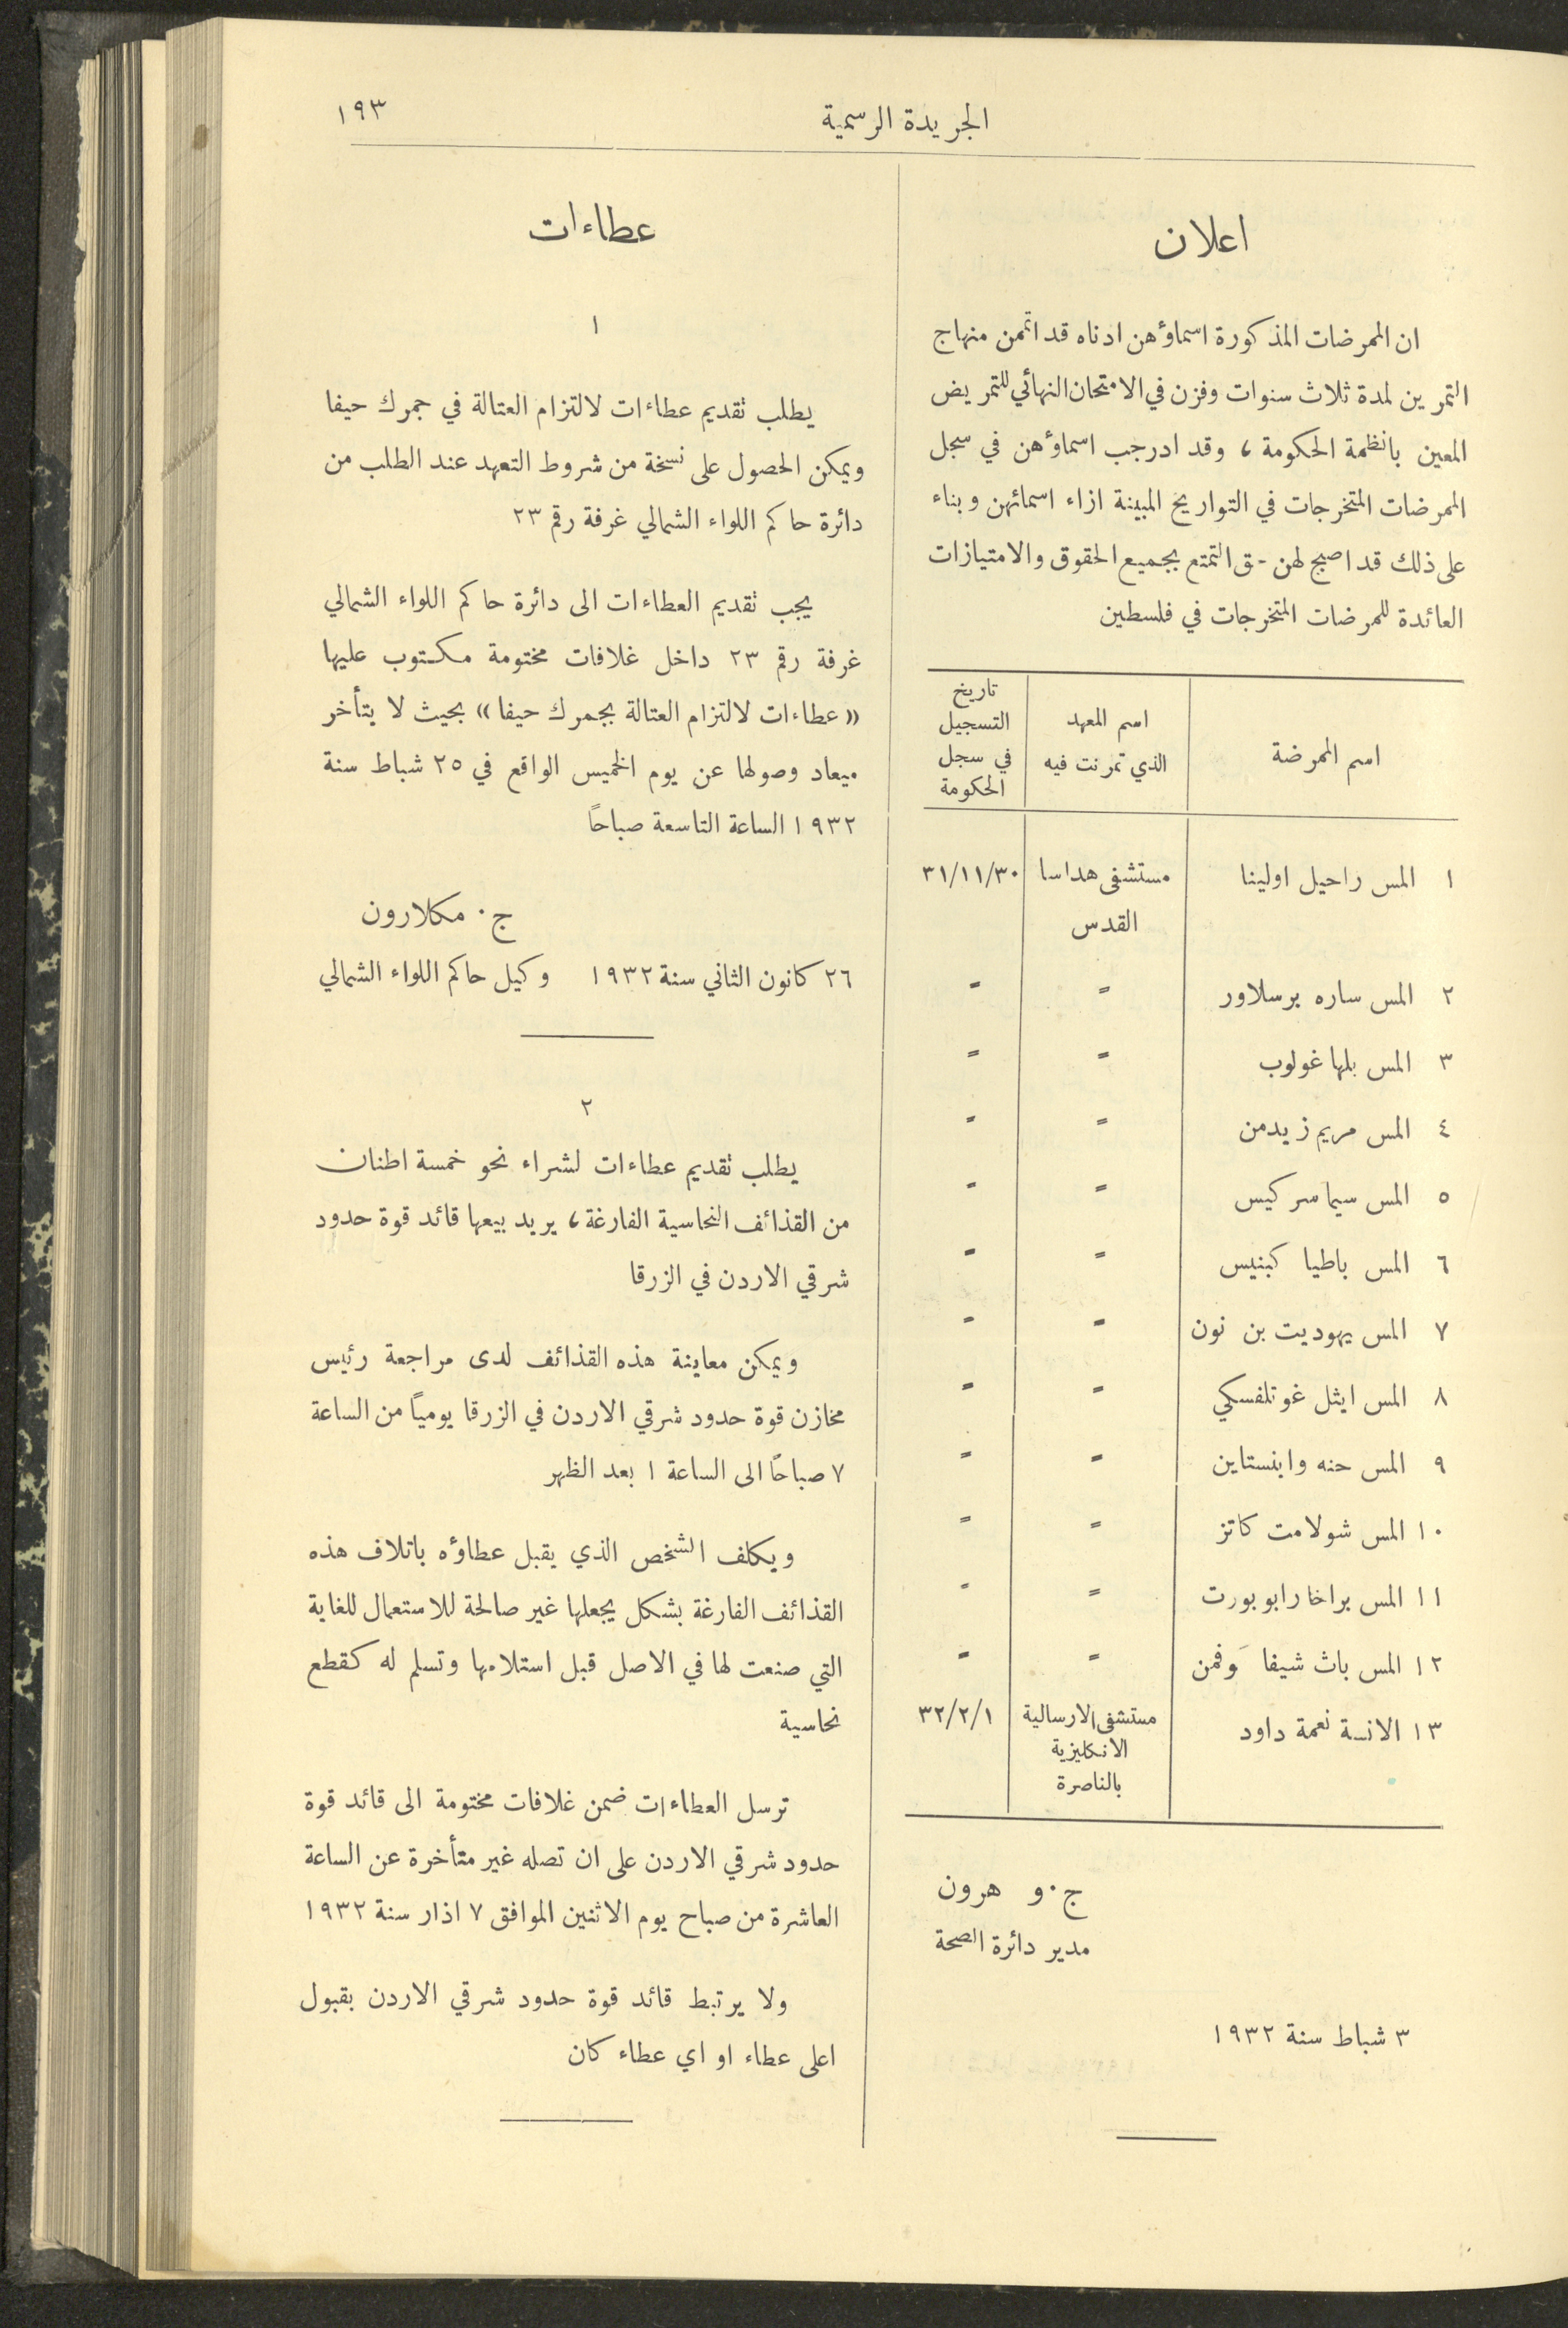 الجريدة الرسمية
١٩٣
اعلان
ان الممرضات المذكورة اسماؤهن ادناه قد اتممن منهاج
التمرين لمدة ثلاث سنوات وفزن في الامتحان النهائي للتمريض
المعين بانظمة الحكومة ، وقد ادرجب اسماؤهن في سجل
الممرضات المتخرجات في التواريخ المبينة ازاء اسمائهن وبناء
على ذلك قد اصبح لهن -ق التمتع بجميع الحقوق والامتيازات
العائدة للمرضات المتخرجات في فلسطين
اسم الممرضة
اسم المعهد
الذي تمرنت فيه
تاريخ
التسجيل
في سجل
الحكومة
١ المس راحيل اولينا مستشفى هداسا ٣١/١١/٣٠
القدس
٢ المس ساره برسلاور = =
٣ المس بلها غولوب = =
٤ المس مريم زيدمن = =
٥ المس سيما سركيس = =
٦ المس باطيا كبنيس = =
٧ المس يهوديت بن نون = =
٨ المس ايثل غوتلفسكي = =
٩ المس حنه واينستاين = =
١٠ المس شولامت كاتز = =
١١ المس براخا رابوبورت = =
١٢ المس باث شيفا وفمن = =
١٣ الانسة نعمة داود مستشفى الارسالية ٣٢/٢/١
الانكليزية
بالناصرة
ج٠ و هرون
مدير دائرة الصحة
٣ شباط سنة ١٩٣٢
عطاءات
١
يطلب تقديم عطاءات لالتزام العتالة في جمرك حيفا
ويمكن الحصول على نسخة من شروط التعهد عند الطلب من
دائرة حاكم اللواء الشمالي غرفة رقم ٢٣
يجب تقديم العطاءات الى دائرة حاكم اللواء الشمالي
غرفة رقم ٢٣ داخل غلافات مختومة مكتوب عليها
«عطاءات لالتزام العتالة بجمرك حيفا» بحيث لا يتأخر
ميعاد وصولها عن يوم الخميس الواقع في ٢٥ شباط سنة
١٩٣٢ الساعة التاسعة صباحاً
ج٠ مكلارون
٢٦ كانون الثاني سنة ١٩٣٢ وكيل حاكم اللواء الشمالي
٢
يطلب تقديم عطاءات لشراء نحو خمسة اطنان
من القذائف النحاسية الفارغة ، يريد بيعها قائد قوة حدود
شرقي الاردن في الزرقا
ويمكن معاينة هذه القذائف لدى مراجعة رئيس
مخازن قوة حدود شرقي الاردن في الزرقا يومياً من الساعة
٧ صباحاً الى الساعة ١ بعد الظهر
ويكلف الشخص الذي يقبل عطاؤه باتلاف هذه
القذائف الفارغة بشكل يجعلها غير صالحة للاستعمال للغاية
التي صنعت لها في الاصل قبل استلامها وتسلم له كقطع
نحاسية
ترسل العطاءات ضمن غلافات مختومة الى قائد قوة
حدود شرقي الاردن على ان تصله غير متأخرة عن الساعة
العاشرة من صباح يوم الاثنين الموافق ٧ اذار سنة ١٩٣٢
ولا يرتبط قائد قوة حدود شرقي الاردن بقبول
اعلى عطاء او اي عطاء كان